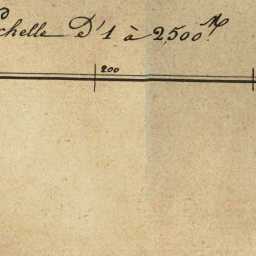 chelle D'1 à 2,500ᵐ
200